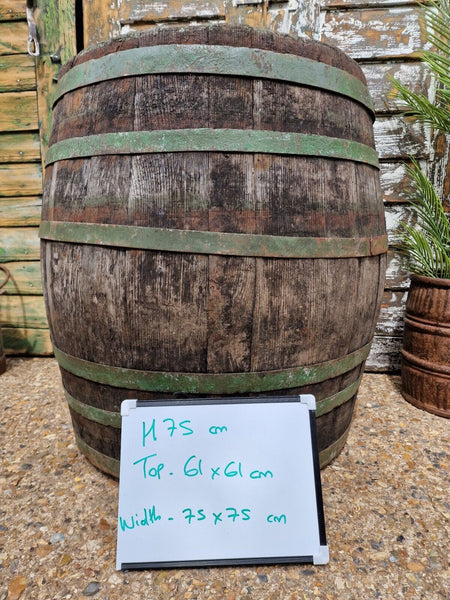 H 75 cm
Top - 61 x 61 cm
Width - 75 x 75 cm